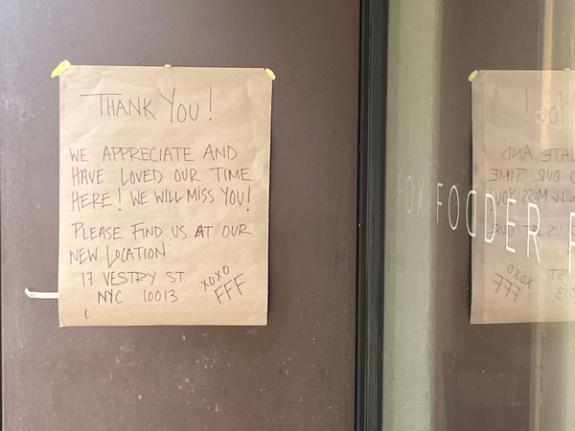 THANK YOU!
WE APPRECIATE AND
HAVE LOVED OUR TIME
HERE! WE WILL MISS YOU!
PLEASE FIND US AT OUR
NEW LOCATION:
17 VESTRY ST.
NYC 10013
XOXO
FFF
FOX FODDER F